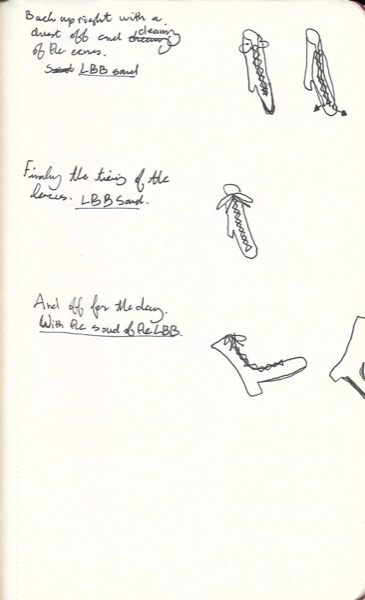 Back upright with a
dust off and cleaning
of the
LBB sound
Finaly the tieing of the
laces. LBB Sound.
And off for the day.
With the soud of the LBB.